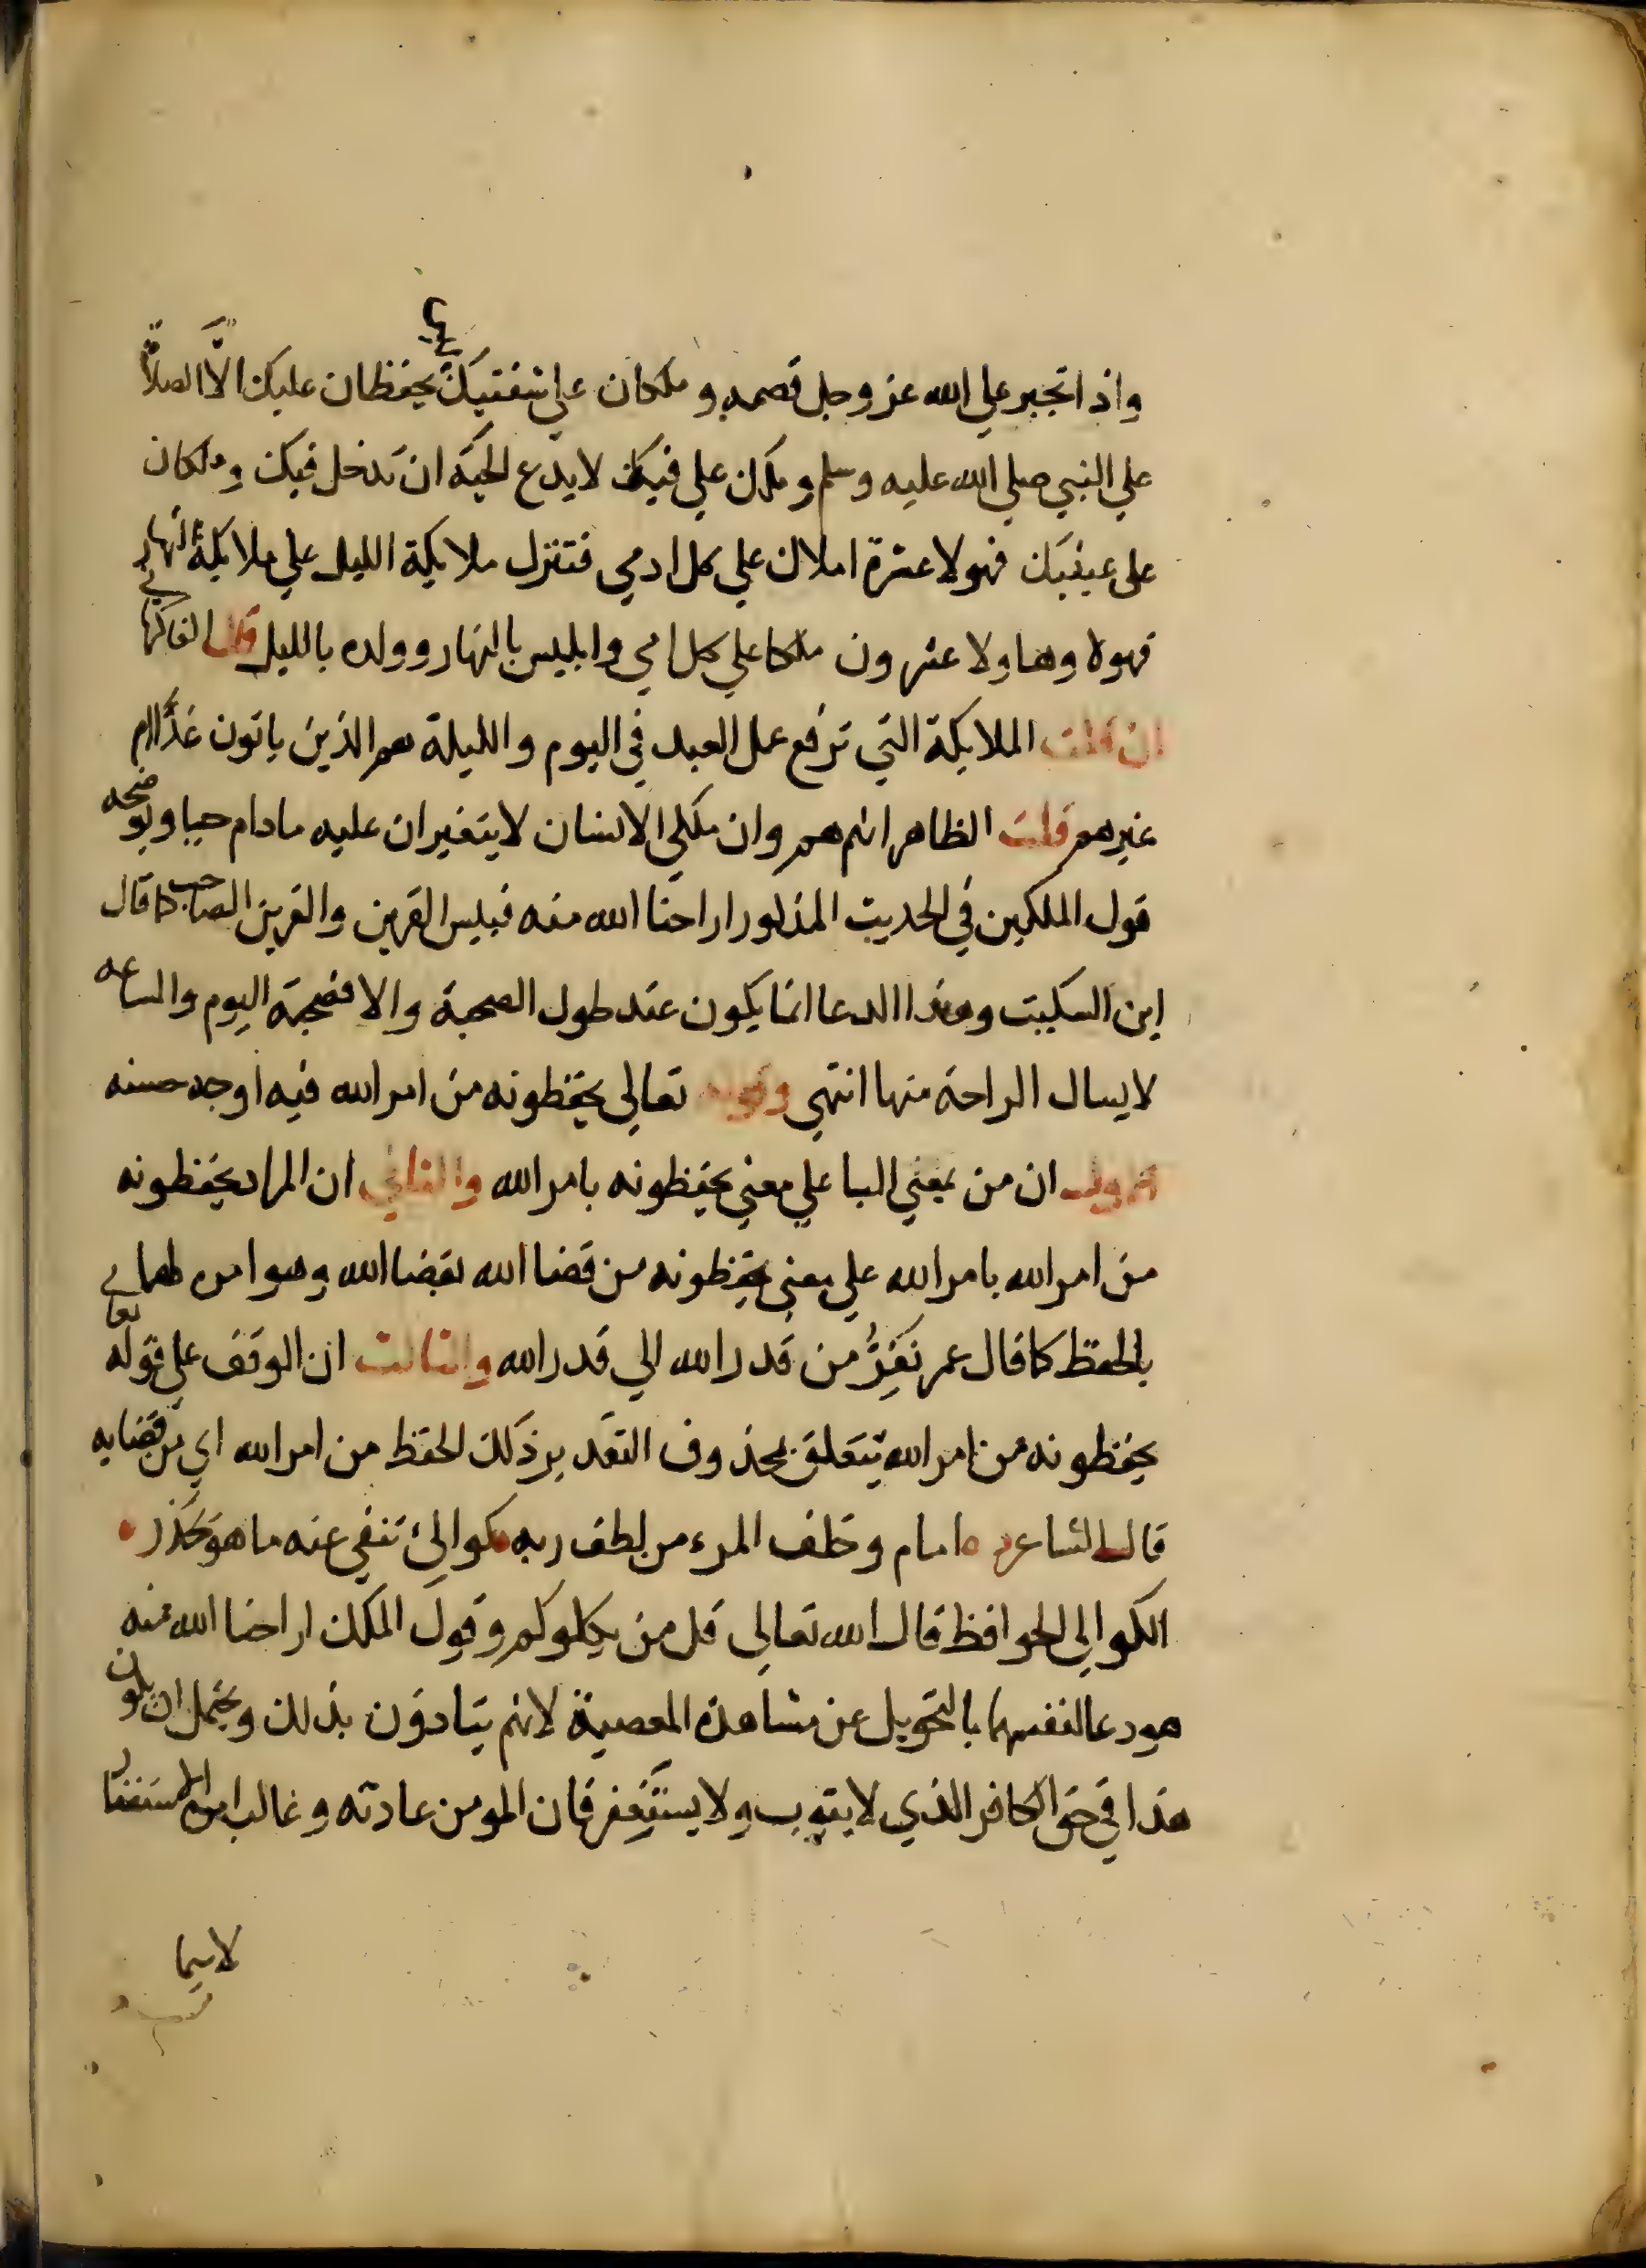 واذا تجبر علي الله عز وجل قصمه وملكان علي شفتيك يحفظان عليك الا الصلاة
علي النبي صلي الله عليه وسلم وملك علي فيك لا يدع الحية ان تدخل فيك وملكان
علي عينيك فهولا عشرة املاك علي كل ادمي فتنزل ملايكة الليل علي ملايكة النهار
فهولا وهاولا عشرون ملكا علي كل ادمي وابليس بالنهار وولده بالليل قال الفاكهاني
ان قلت الملايكة التي ترفع عمل العبد في اليوم والليلة هم الذين ياتون غدًا ام
غيرهم قلت الظاهر انهم هم وان ملكي الانسان لا يتغيران عليه مادام حيا ويوضحه
قول الملكين في الحديث المذكور اراحنا الله منه فبيس القرين والقرين الصاحب كما قال
ابن السكيت وهذا الدعا انما يكون عند طول الصحبة والا فصحبة اليوم والساعه
لا يسال الراحة منها انتهي وقوله تعالي يحفظونه من امر الله فيه اوجه حسنه
الاول ان من بمعني البا علي معني يحفظونه بامر الله والثاني ان المراد يحفظونه
من امر الله بامر الله علي معني يحفظونه من قضا الله بقضا الله وهو امره لهما
بالحفظ كما قال عمر نَفِرُّ من قدر الله الي قدر الله والثالث ان الوقف علي قوله تعالي
يحفظونه من امر الله يتعلق بمحذوف التقدير ذلك الحفظ من امر الله اي من قضايه
قال الشاعر ه امام وخلف المرء من لطف ربه كوالئ تنفي عنه ما هو يحذر
الكوالي الحوافظ قال الله تعالي قل من يكلوكم وقول الملك اراحنا الله منه
هو دعا لنفسهما بالتحويل عن مشاهدة المعصية لانهم يتاذون بذلك ويحتمل ان يكون
هذا في حق الكافر الذي لا يتوب ولا يستغفر فان المومن عادته وغالب امره الاستغفار
لاسيما